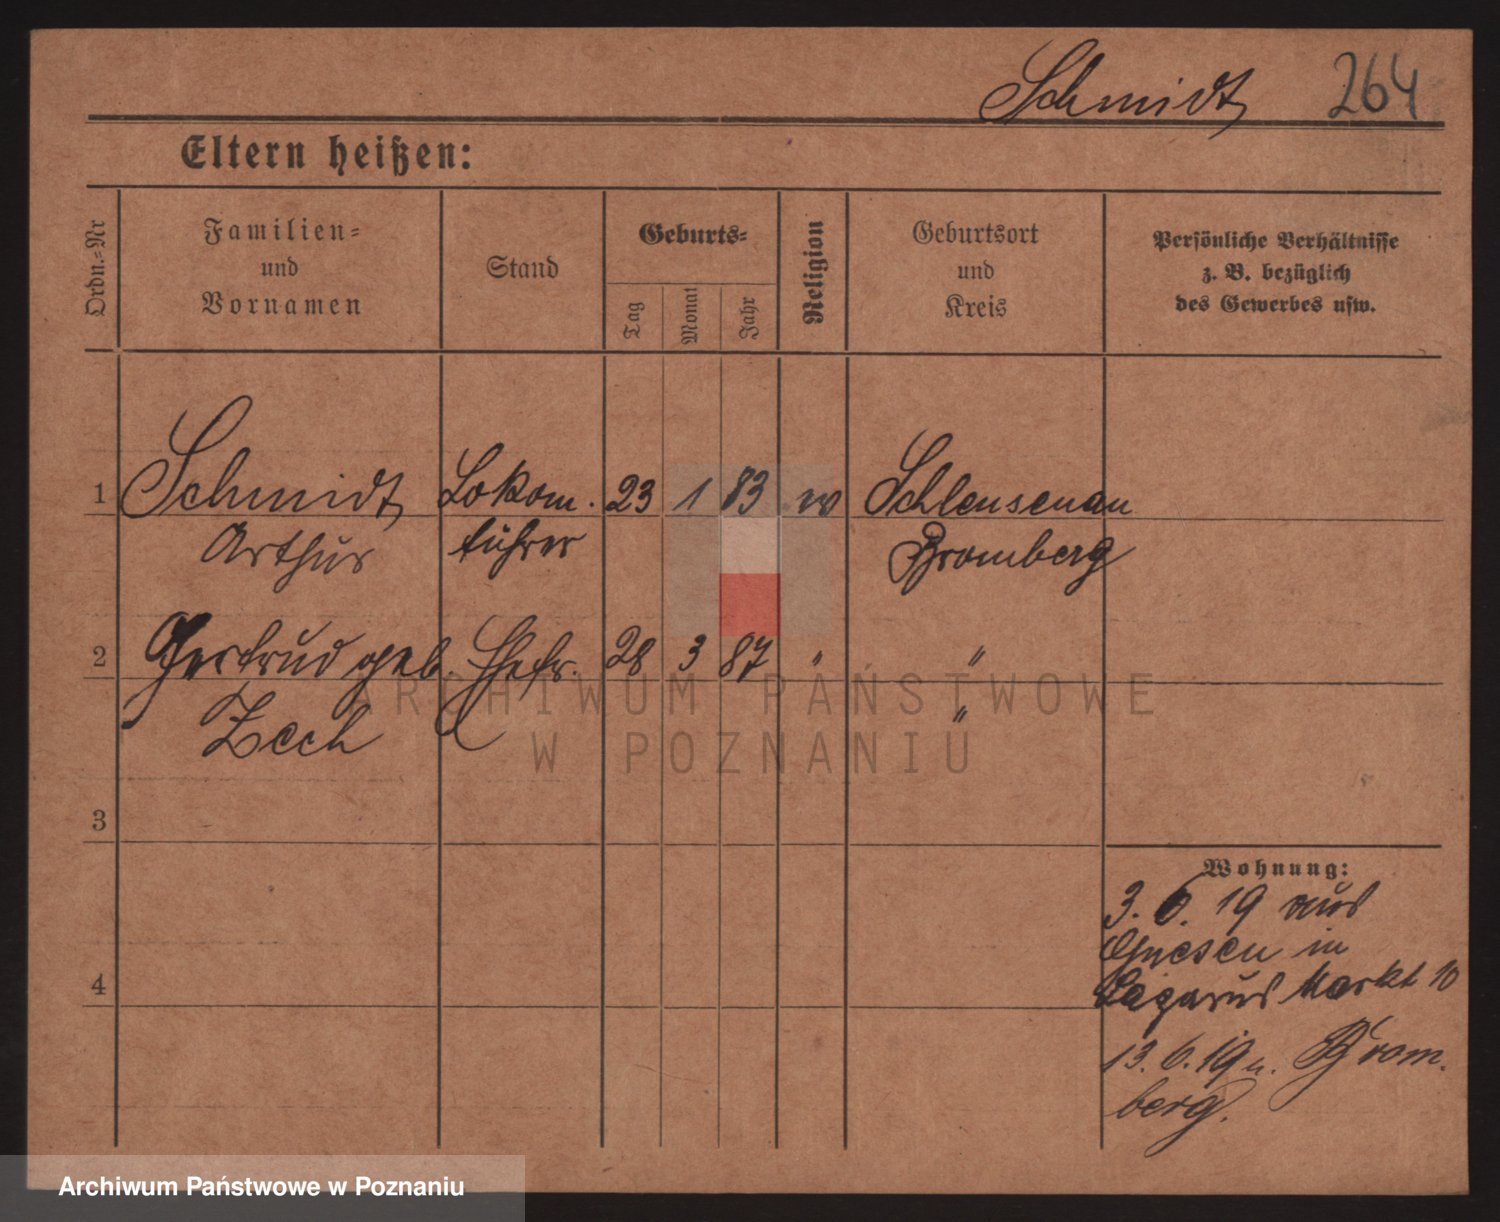 Schmidt 264
Eltern heißen:
Ordn.-Nr
Familien-
und
Vornamen
Stand
Geburts-
Tag
Monat
Jahr
Religion
Geburtsort
und
Kreis
Persönliche Verhältnisse
z. B. bezüglich
des Gewerbes usw.
1 Schmidt Lokom. 23 1 83 w Schleusenau
Arthur führer Bromberg
2 Gertrud geb. Ehefr. 28 3 87 " "
Zech "
3
4
Wohnung:
3. 6. 19 aus
Gnesen in
Lazarus Markt 10
13. 6. 19 n. Brom.
berg.
ARCHIWUM PAŃSTWOWE
W POZNANIU
Archiwum Państwowe w Poznaniu